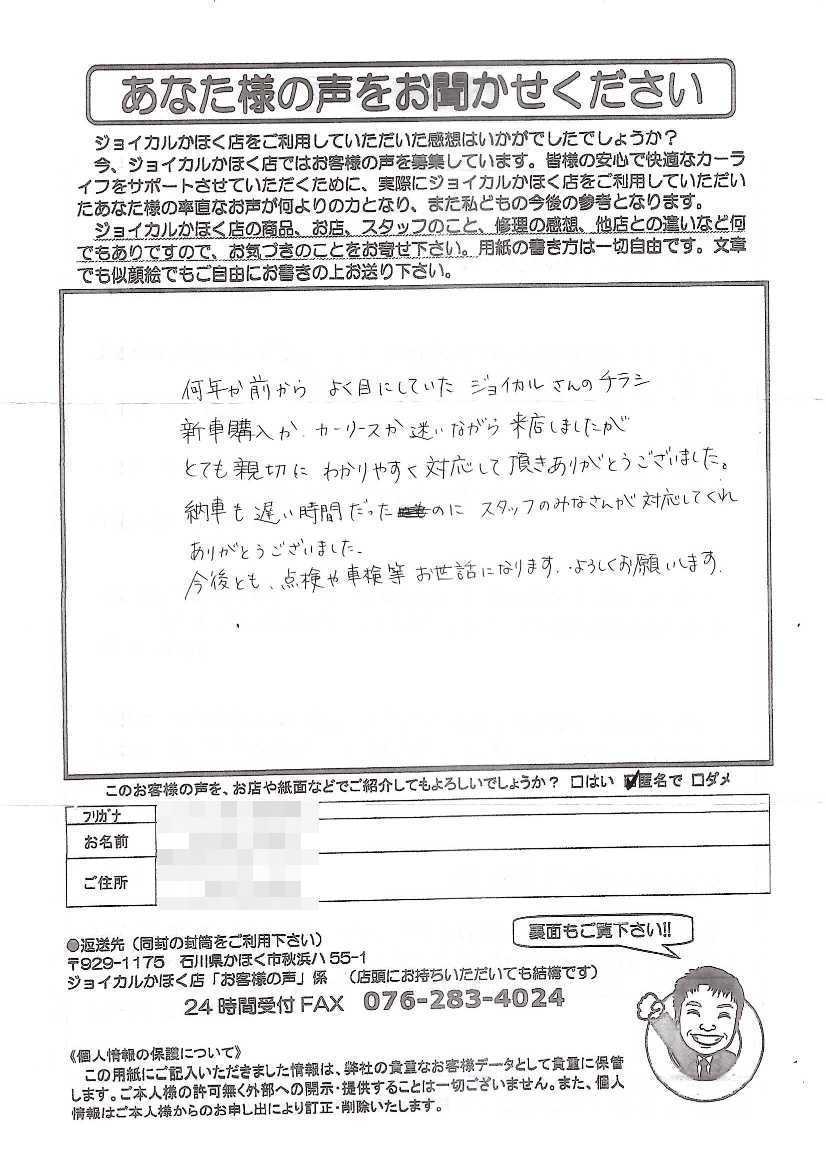 あなた様の声をお聞かせください
ジョイカルかほく店をご利用していただいた感想はいかがでしたでしょうか？
今、ジョイカルかほく店ではお客様の声を募集しています。皆様の安心で快適なカーラ
イフをサポートさせていただくために、実際にジョイカルかほく店をご利用していただい
たあなた様の率直なお声が何よりの力となり、また私どもの今後の参考となります。
ジョイカルかほく店の商品、お店、スタッフのこと、修理の感想、他店との違いなど何
でもありですので、お気づきのことをお寄せ下さい。用紙の書き方は一切自由です。文章
でも似顔絵でもご自由にお書きの上お送り下さい。
何年か前から よく目にしていた ジョイカル さんのチラシ
新車購入か、カーリースか迷いながら 来店しましたが
とても親切に わかりやすく 対応して 頂きありがとうございました。
納車も 遅い時間だった のに スタッフのみなさんが 対応してくれ
ありがとうございました。
今後とも、点検や車検等 お世話になります。よろしくお願いします。
このお客様の声を、お店や紙面などでご紹介してもよろしいでしょうか？ □はい ☑匿名で □ダメ
フリガナ
お名前
ご住所
裏面もご覧下さい!!
●返送先（同封の封筒をご利用下さい）
〒929-1175 石川県かほく市秋浜ハ55-1
ジョイカルかほく店「お客様の声」係 （店頭にお持ちいただいても結構です）
24時間受付FAX 076-283-4024
《個人情報の保護について》
この用紙にご記入いただきました情報は、弊社の貴重なお客様データとして貴重に保管
します。ご本人様の許可無く外部への開示・提供することは一切ございません。また、個人
情報はご本人様からのお申し出により訂正・削除いたします。